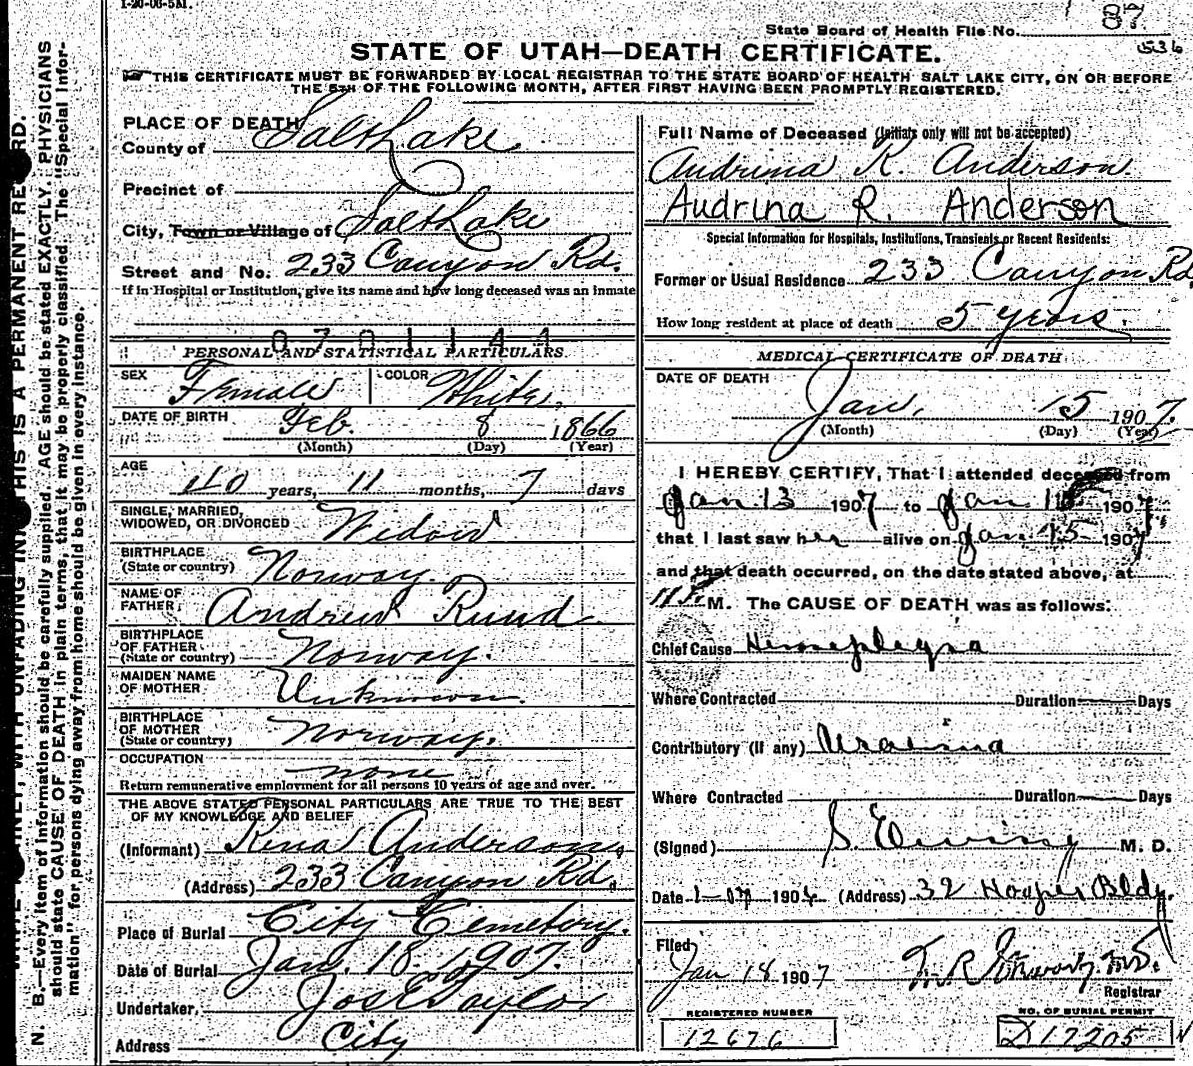 1-20-06-5M.
87
State Board of Health File No.
536
STATE OF UTAH—DEATH CERTIFICATE.
THIS CERTIFICATE MUST BE FORWARDED BY LOCAL REGISTRAR TO THE STATE BOARD OF HEALTH SALT LAKE CITY, ON OR BEFORE
THE 5TH OF THE FOLLOWING MONTH, AFTER FIRST HAVING BEEN PROMPTLY REGISTERED.
PLACE OF DEATH
County of Salt Lake
Precinct of
City, Town or Village of Salt Lake
Street and No. 233 Canyon Rd.
If in Hospital or Institution, give its name and how long deceased was an inmate
0701144
PERSONAL AND STATISTICAL PARTICULARS
SEX Female COLOR White
DATE OF BIRTH Feb. 8 1866
(Month) (Day) (Year)
AGE 40 years, 11 months, 7 days
SINGLE, MARRIED,
WIDOWED, OR DIVORCED Widow
BIRTHPLACE
(State or country) Norway.
NAME OF
FATHER Andrew Ruud
BIRTHPLACE
OF FATHER
(State or country) Norway.
MAIDEN NAME
OF MOTHER Unknown
BIRTHPLACE
OF MOTHER
(State or country) Norway.
OCCUPATION none
Return remunerative employment for all persons 10 years of age and over.
THE ABOVE STATED PERSONAL PARTICULARS ARE TRUE TO THE BEST
OF MY KNOWLEDGE AND BELIEF
(Informant) Rina Anderson,
(Address) 233 Canyon Rd.
Place of Burial City Cemetery.
Date of Burial Jan. 18, 1907.
Undertaker, Jos E Taylor
Address City
Full Name of Deceased (Initials only will not be accepted)
Audrina R. Anderson.
Audrina R. Anderson
Special Information for Hospitals, Institutions, Transients or Recent Residents:
Former or Usual Residence 233 Canyon Rd
How long resident at place of death 5 years.
MEDICAL CERTIFICATE OF DEATH
DATE OF DEATH
Jan. 15 1907.
(Month) (Day) (Year)
I HEREBY CERTIFY, That I attended deceased from
Jan 13 1907 to Jan 1907
that I last saw her alive on Jan 15 1907
and that death occurred, on the date stated above, at
M. The CAUSE OF DEATH was as follows:
Chief Cause Hemeplegia
Where Contracted Duration Days
Contributory (if any)
Where Contracted Duration Days
(Signed) S. Ewing M. D.
Date 190 (Address) 32 Hooper Bldg.
Filed
Jan 18 1907
Registrar
REGISTERED NUMBER
12676
NO. OF BURIAL PERMIT
D17205
N. B.—Every item of information should be carefully supplied. AGE should be stated EXACTLY. PHYSICIANS
should state CAUSE OF DEATH in plain terms, that it may be properly classified. The "Special Infor-
mation" for persons dying away from home should be given in every instance.
WITH UNFADING INK THIS IS A PERMANENT